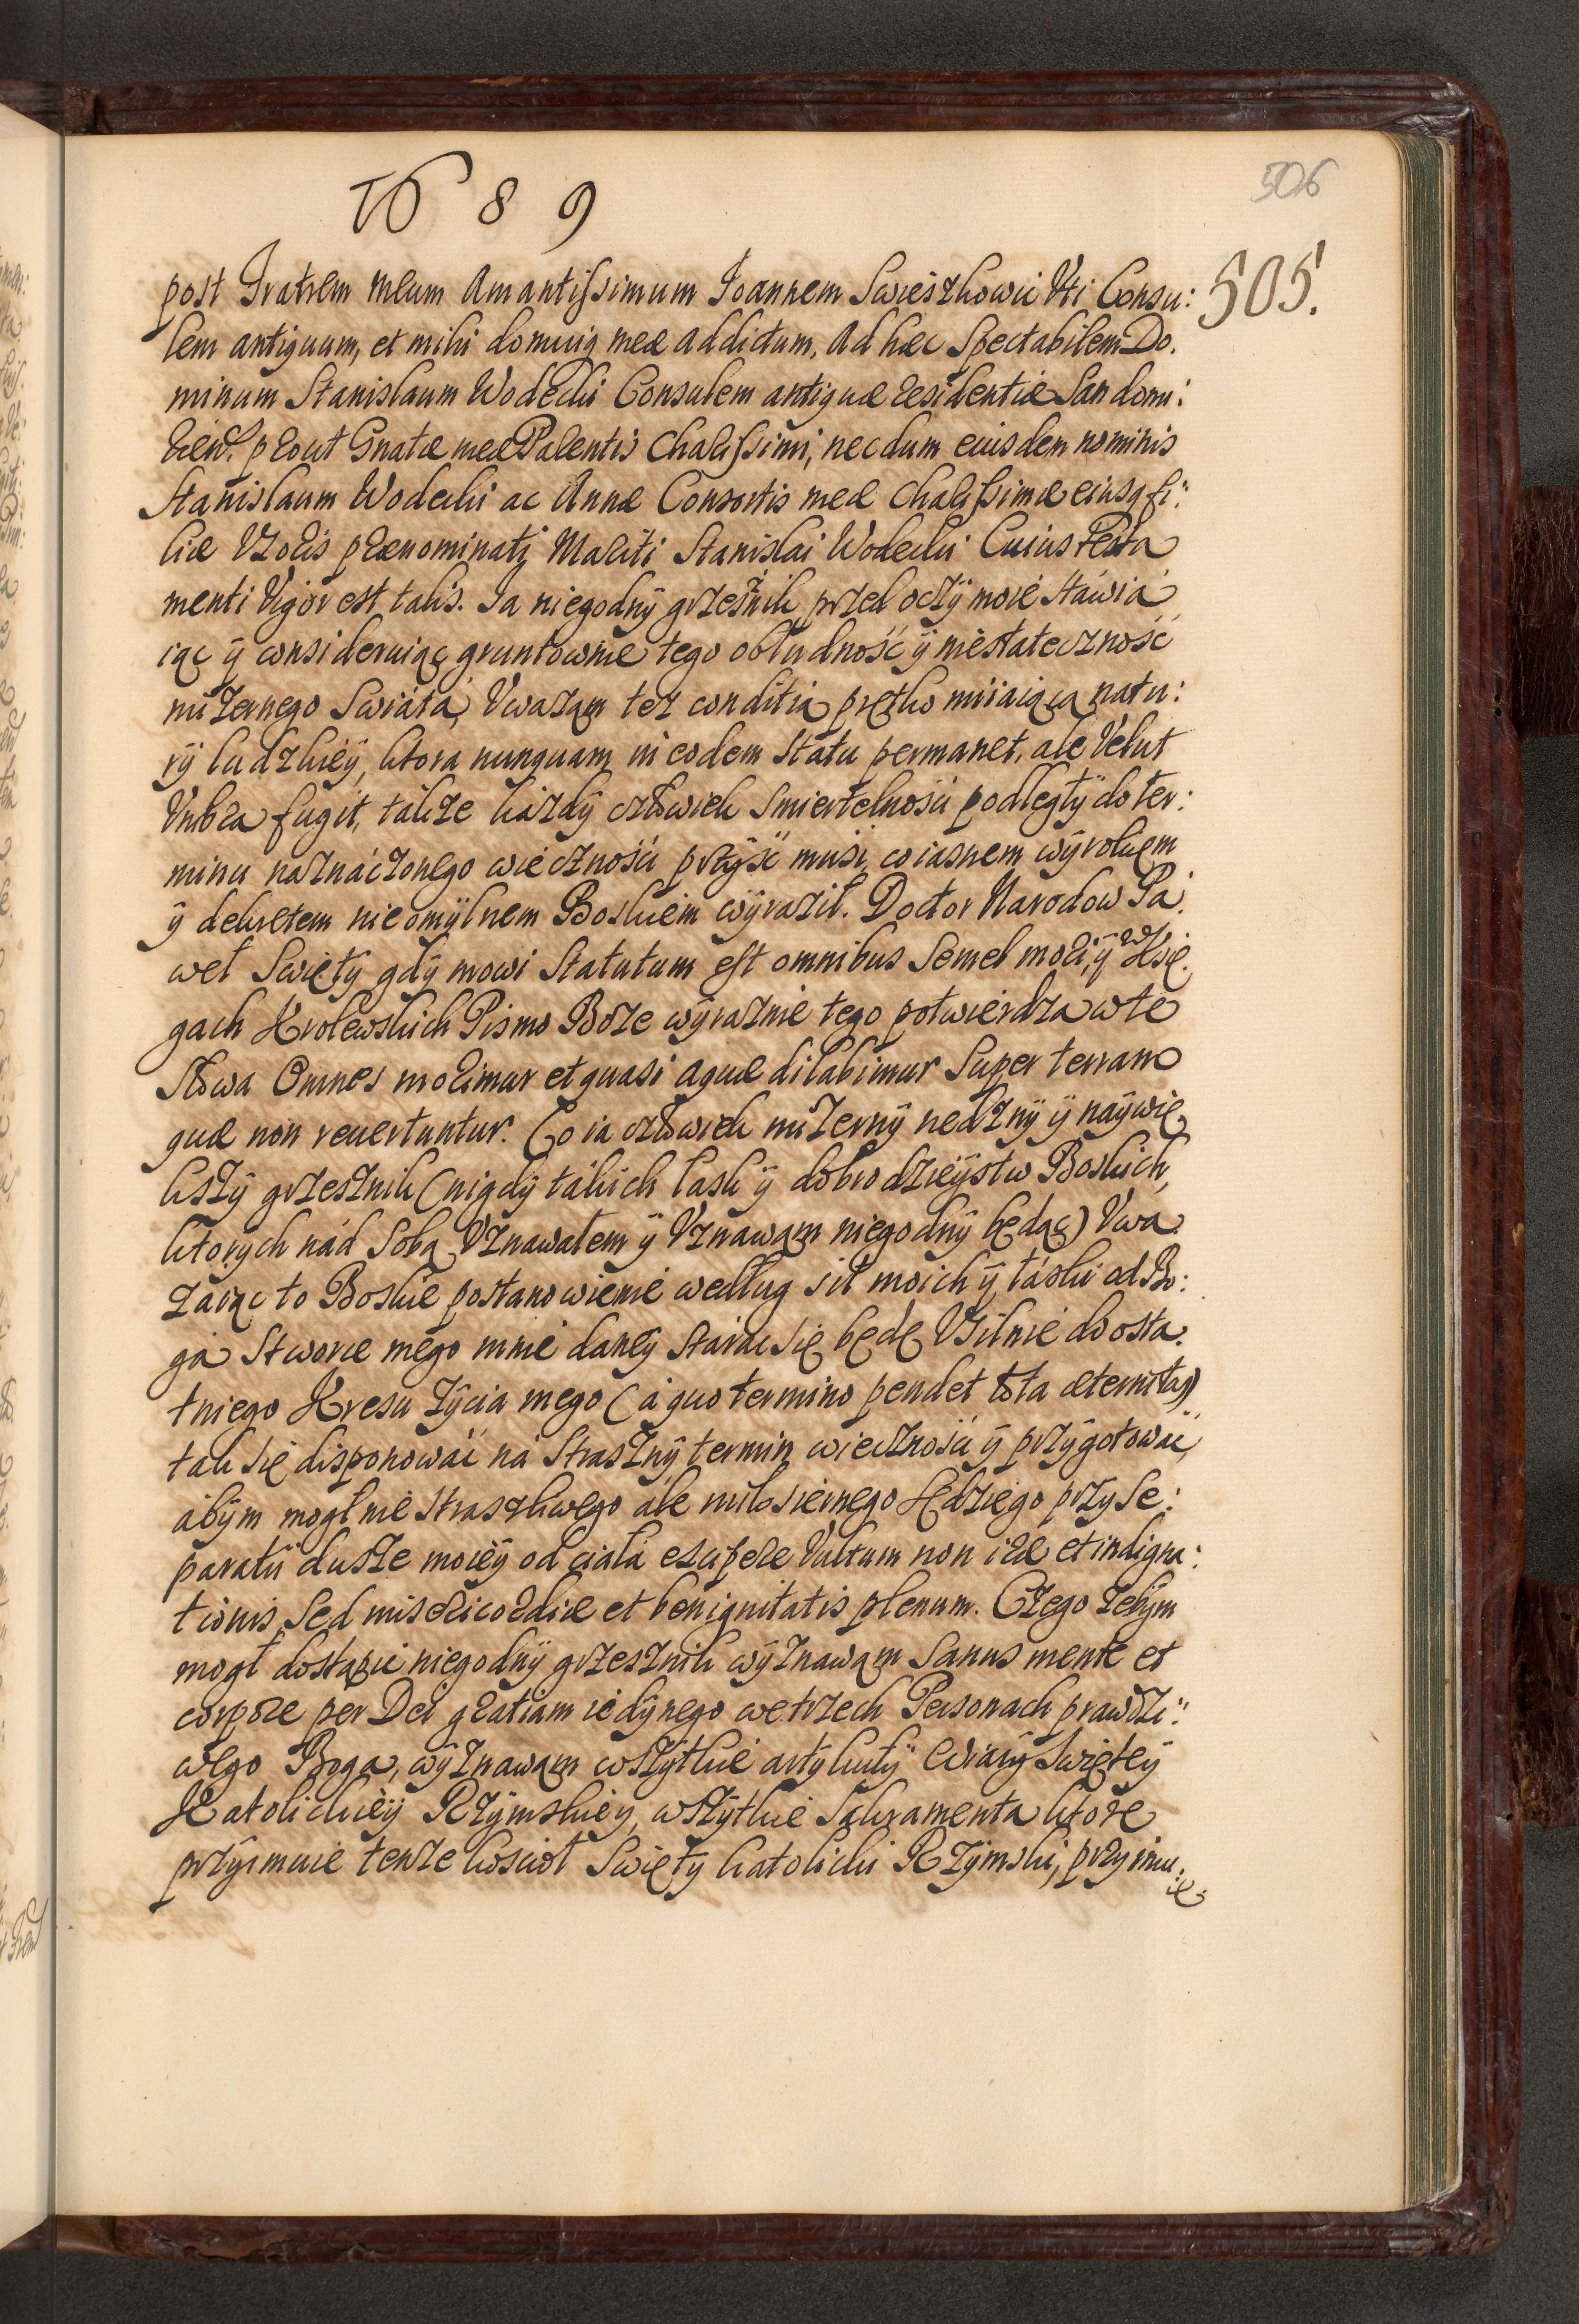 1689
506
505.
post Fratrem meum Amantissimum Joannem Swieszkowic Uti Consu:
lem antiquum, et mihi domuiq meæ addictum, Ad hæc Spectabilem Do.
minum Stanislaum Wodecki Consulem antiquæ residentiæ Sandomi:
rien. prout Gnatæ meæ Parentis Charissimi, necdum eiusdem nominis
Stanislaum Wodecki ac Annæ Consortis meæ Charissimæ eiusq fi:
liæ Uxoris prænominati Mariti Stanislai Wodecki Cuius Testa
menti Vigor est talis. Ia niegodnÿ grzesznik przed oczÿ moie stáwiá
iąc ÿ consideruiąc gruntownie tego obłudność ÿ niestateczność
mizernego Swiátá, Uwazam tez conditią prętko miiaiącą natu:
rÿ ludzkiéÿ, ktora nunquam in eodem statu permanet, ale Velut
Umbra fugit, tákze kázdÿ człowiek smiertelnosci podległÿ do ter:
minu náznáczonego wiecznosci przÿść musi, co iasnem wÿrokiem
ÿ dekretem nieomÿlnem Boskiem wÿraził. Doctor Narodow Pá.
weł Swiętÿ gdÿ mowi Statutum est omnibus Semel mori, ÿ w Xsię.
gach Krolewskich Pismo Boże wÿraźnie tego potwierdza w te
Słowa Omnes morimur et quasi aquæ dilabimur Super terram
quæ non reuertuntur. Co ia człowiek mizernÿ nedznÿ ÿ naÿwię
kszÿ grzesznik (nigdÿ tákich łask ÿ dobrodzieÿstw Boskich,
ktorych nád sobą Uznawałem ÿ Uznawam niegodnÿ będąc) Uwa
zaiąc to Boskie postanowienie według sił moich ÿ łáski od Bo:
gá Stworce mego mnie daneÿ stárac się będę Usilnie do osta.
tniego Kresu Zÿcia mego (á quo termino pendet tota æternitas)
tak się disponowáć ná Strasznÿ termin wiecznosci ÿ przÿgotowác,
ábÿm mogł nie straszliwego ále miłosiernego Sędziego przy Se:
paratiï dusze moieÿ od ciáłá excipere Vultum non iræ et indigna:
tionis Sed misericordiæ et benignitatis plenum. Czego zebÿm
mogł dostąpic niegodnÿ grzesznik wÿznawam Sanus mente et
corpore per Dei gratiam iedÿnego we trzech Personach prawdzi:
wego Boga, wÿznawam wszÿtkie artÿkułÿ Wiarÿ Swięteÿ
Katolickieÿ Rzÿmskieÿ, wszÿtkie Sakramenta ktore
przÿimuie tenże kościoł Swięty katolicki Rzÿmski, przyimu:
ię